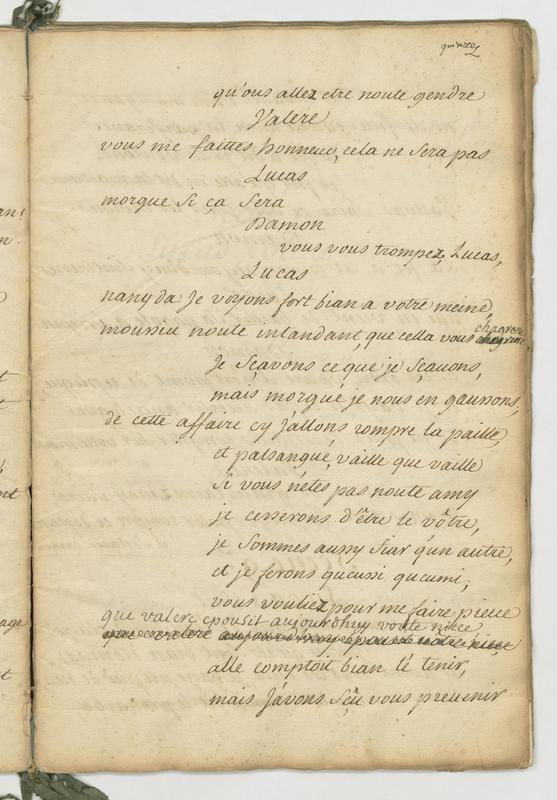 quinze
qu'ous allez etre noute gendre
Valere
vous me faittes honneur, cela ne sera pas
Lucas
morgué si ça sera
Damon
vous vous trompez, Lucas,
Lucas
nany da: Je voyons fort bian a votre meine,
chagrene
moussieu noute intandant, que cella vous
Je sçavons ce que je sçavons,
mais morgué je nous en gaussons;
de cette affaire cy j'allons rompre la paille,
et palsangué, vaille que vaille
si vous n'etes pas noute amy
je cesserons d'être le vôtre,
je sommes aussy fiar qu'un autre,
et je ferons qucussi qucumi;
vous vouliez pour me faire piece
que valere epousit aujourdhuy voute niece
alle comptoit bian le tenir,
mais j'avons sçu vous prevenir